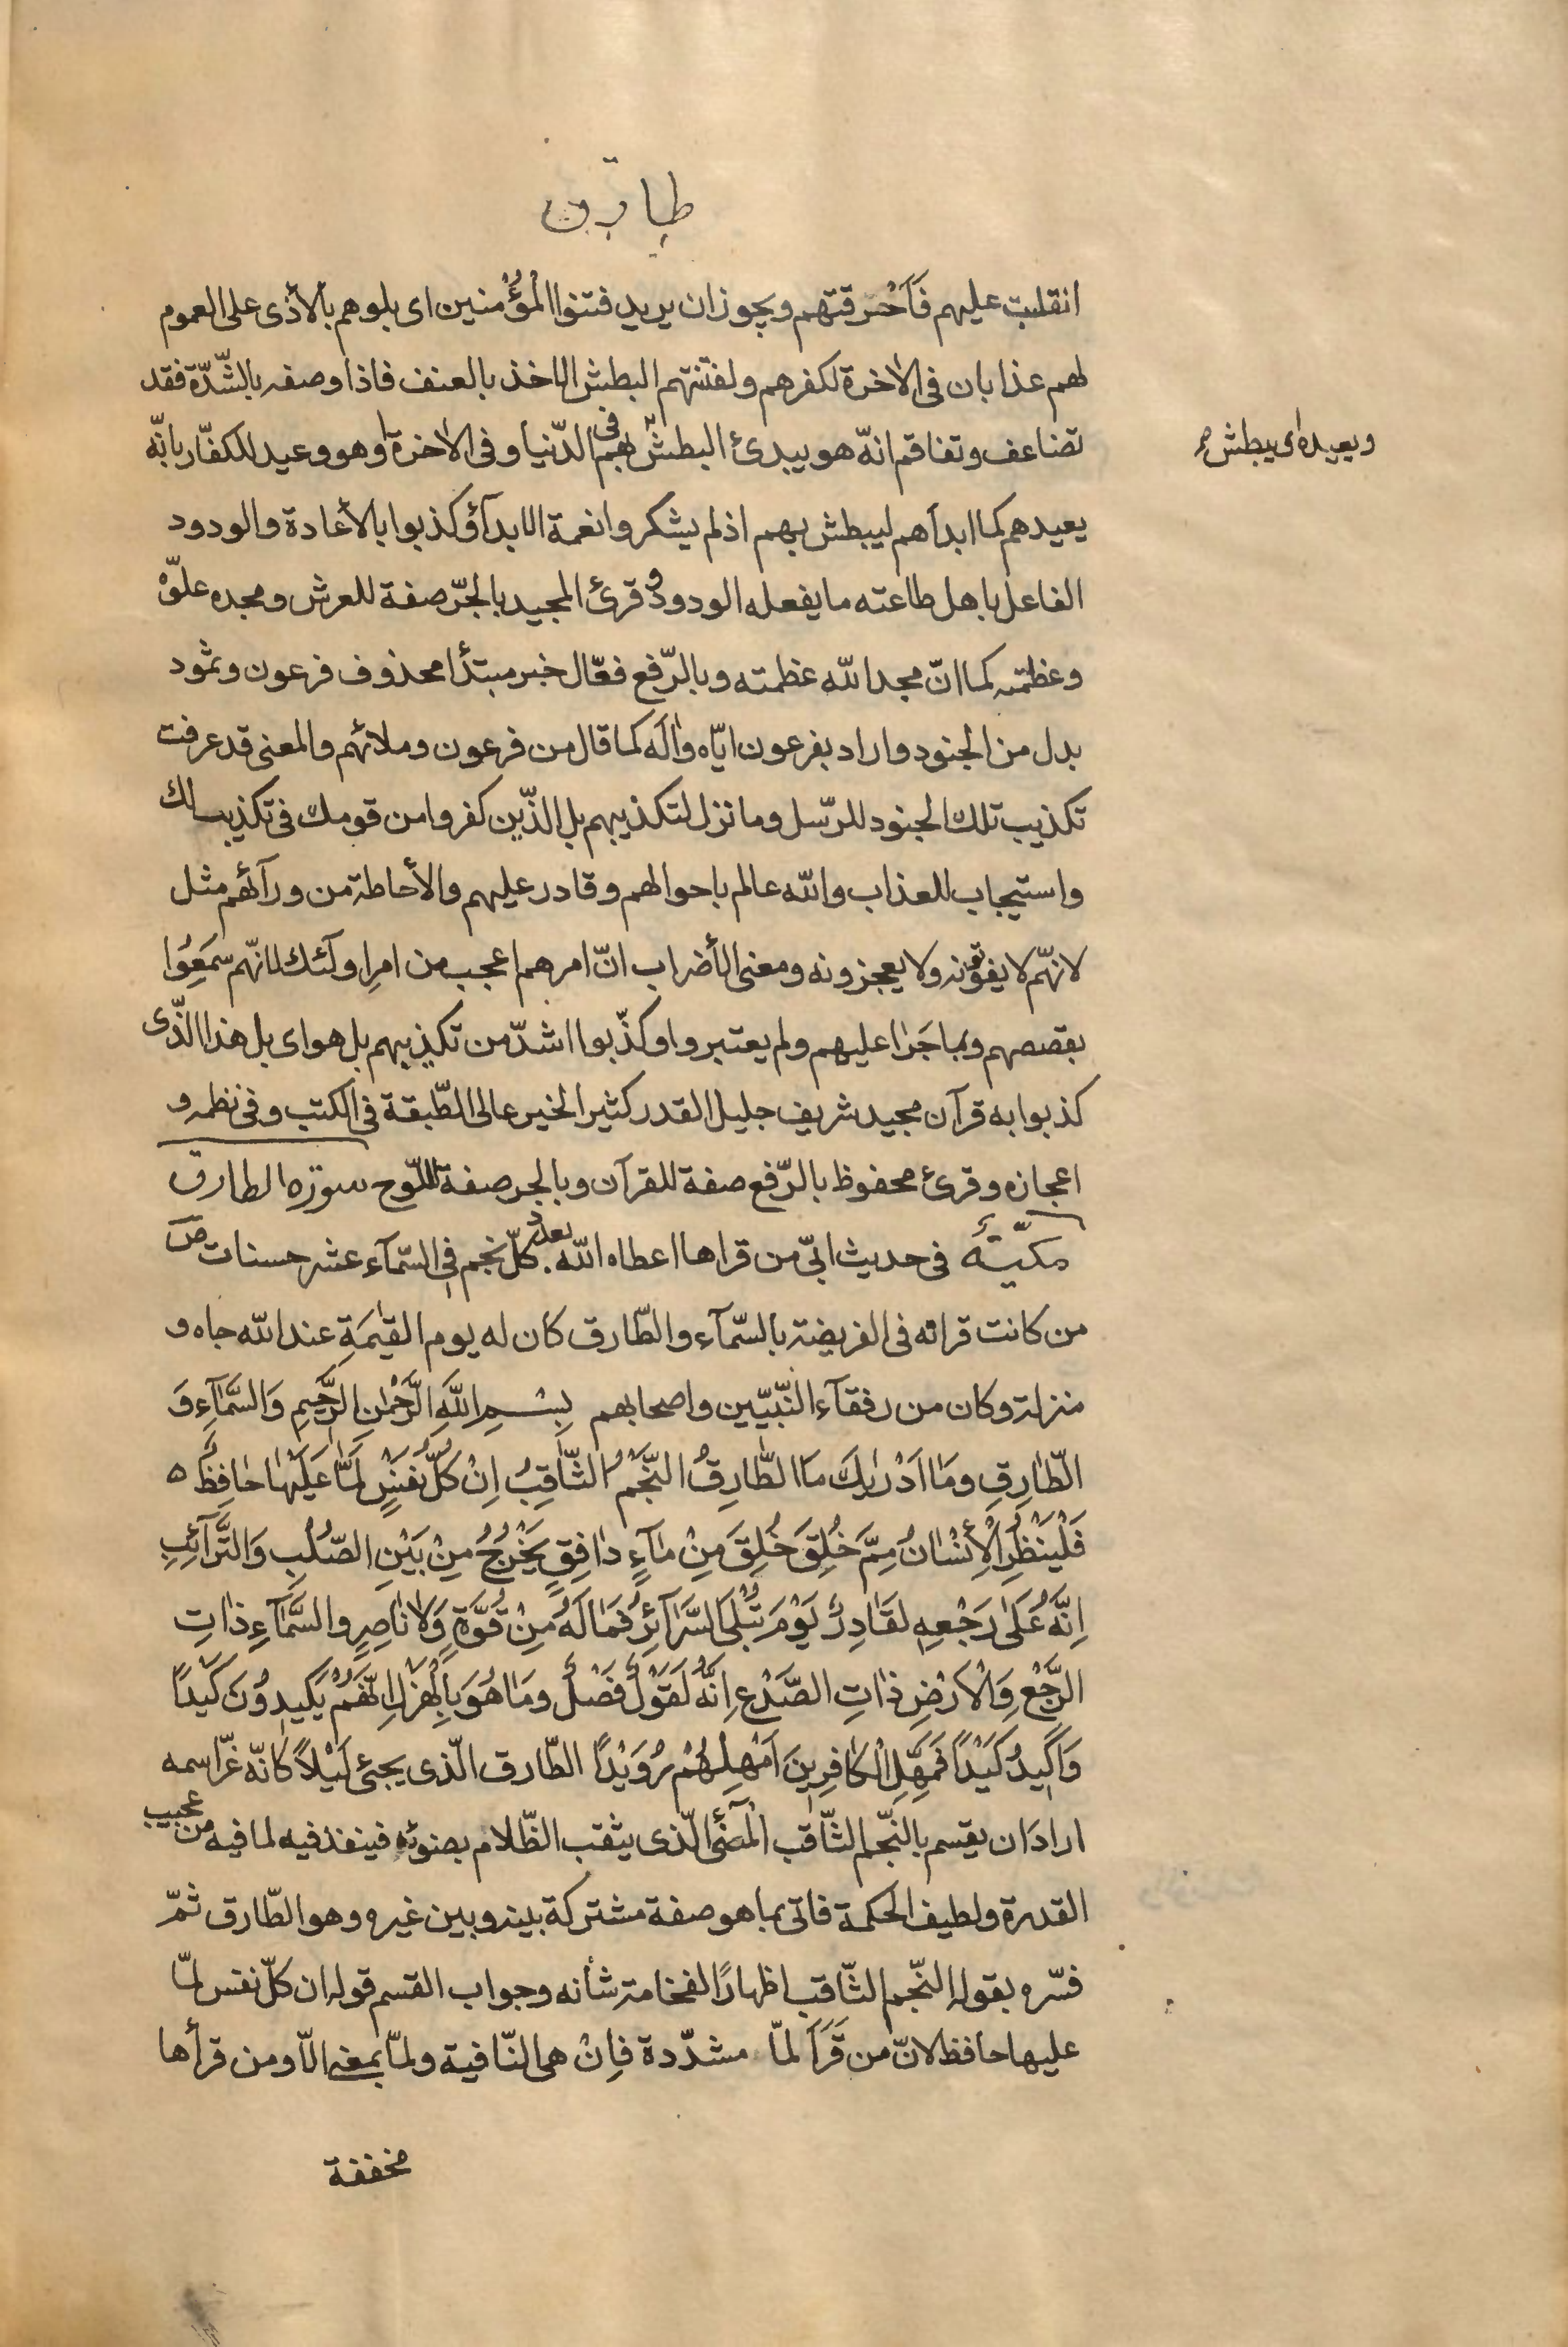 طارق
انقلبت عليهم فَاَحْترقتهم ويجوز ان يريد فتنوا المُؤْمنين اى بلوهم بالأذى على العموم
لهم عذابان فى الاخرة لكفرهم ولفتنتهم البطش الاخذ بالعنف فاذا وصفه بالشّدّة فقد
تضاعف وتفاقم انّه هو يبدئ البطش بهم فى الدّنيا وفى الاخرة او هو وعيد للكفّار بانّه
ويعيده اى يبطش
يعيدهم كما ابدأهم ليبطش بهم اذ لم يشكروا نعمة الابدآء وكذبوا بالأعادة والودود
الفاعل باهل طاعته ما يفعله الودود وقرئ المجيد بالجرّ صفة للعرش ومجده علوّه
وعظمته كما انّ مجد الله عظمته وبالرّفع فعّال خبر مبتدأ محذوف فرعون وثمود
بدل من الجنود واراد بفرعون ايّاه وآله كما قال من فرعون وملائهم والمعنى قد عرفت
تكذيب تلك الجنود للرّسل وما نزل لتكذيبهم بل الذّين كفروا من قومك فى تكذيب لك
واستيجاب للعذاب والله عالم باحوالهم وقادر عليهم والأحاطة من ورآئهم مثل
لانهّم لا يفوتونه ولا يعجزونه ومعنى الأضراب انّ امرهم اعجب من امر اولئك لانهّم سَمَعُوا
بقصصهم وبما جَرٰا عليهم ولم يعتبروا وكذّبوا اشدّ من تكذيبهم بل هو اى بل هذا الذّى
كذبوا به قرآن مجيد شريف جليل القدر كثير الخير عالى الطّبقة فى الكتب وفى نظمه و
اعجازه وقرئ محفوظ بالرّفع صفة للقرآن وبالجر صفة للّوح سورة الطارق
مكيّة فى حديث ابىّ من قراها اعطاه الله بعدد كلّ نجم فى السّمآء عشر حسنات ص
من كانت قراته فى الفريضة بالسّمآء والطّارق كان له يوم القيٰمَةِ عند الله جاه و
منزلة وكان من رفقآء النّبيّين واصحابهم بِسْمِ اللَّهِ الرَّحْمٰنِ الرَّحِيمِ وَالسَّمٰآءِ وَ
الطّٰارِقِ ومَا اَدْرٰيكَ مَا الطّٰارِقُ النَّجْمُ الثّٰاقِبُ اِنْ كُلُّ نَفْسٍ لَمّٰا عَلَيْهٰا حٰافِظٌ ه
فَلْيَنْظُرِ الْأِنْسٰانُ مِمَّ خُلِقَ خُلِقَ مِنْ مٰآءٍ دٰافِقٍ يَخْرُجُ مِنْ بَيْنِ الصُّلْبِ وَالتَّرٰآئِبِ
اِنَّهُ عَلىٰ رَجْعِهِ لقَادِرٌ يَوْمَ تُبْلَى السَّرٰآئِرُ فَمٰا لَهُ مِنْ قُوَّةٍ وَلاٰ نٰاصِرٍ والسَّمٰآءِ ذٰاتِ
الرَّجْعِ وَالْاَرْضِ ذٰاتِ الصَّدْعِ اِنَّهُ لَقَوْلٌ فَصْلٌ ومٰا هُوَ بِالْهَزْلِ اِنَّهُمْ يَكِيدُونَ كَيْدًا
وَاَكِيدُ كَيْدًا فَمَهِّلِ الْكٰافِرِينَ اَمْهِلْهُمْ رُوَيْدًا الطّارق الّذى يجئ لَيْلًا كانّه عزّ اسمه
اراد ان يقسم بالنّجم الثّاقب المُضئ الّذى يثقب الظّلام بضوئه فينفذ فيه لما فيه من عجيب
القدرة ولطيف الحكمة فاتى بما هو صفة مشتركة بينه وبين غيره وهو الطّارق ثمّ
فسّره بقوله النّجم الثّاقب اظهارًا لفخامة شأنه وجواب القسم قوله ان كلّ نفس لمّا
عليها حافظ لانّ من قَرَأ لمّا مشدّدة فإنْ هى النّافية ولمّا بمعنى الّا ومن قرأها
مخففة